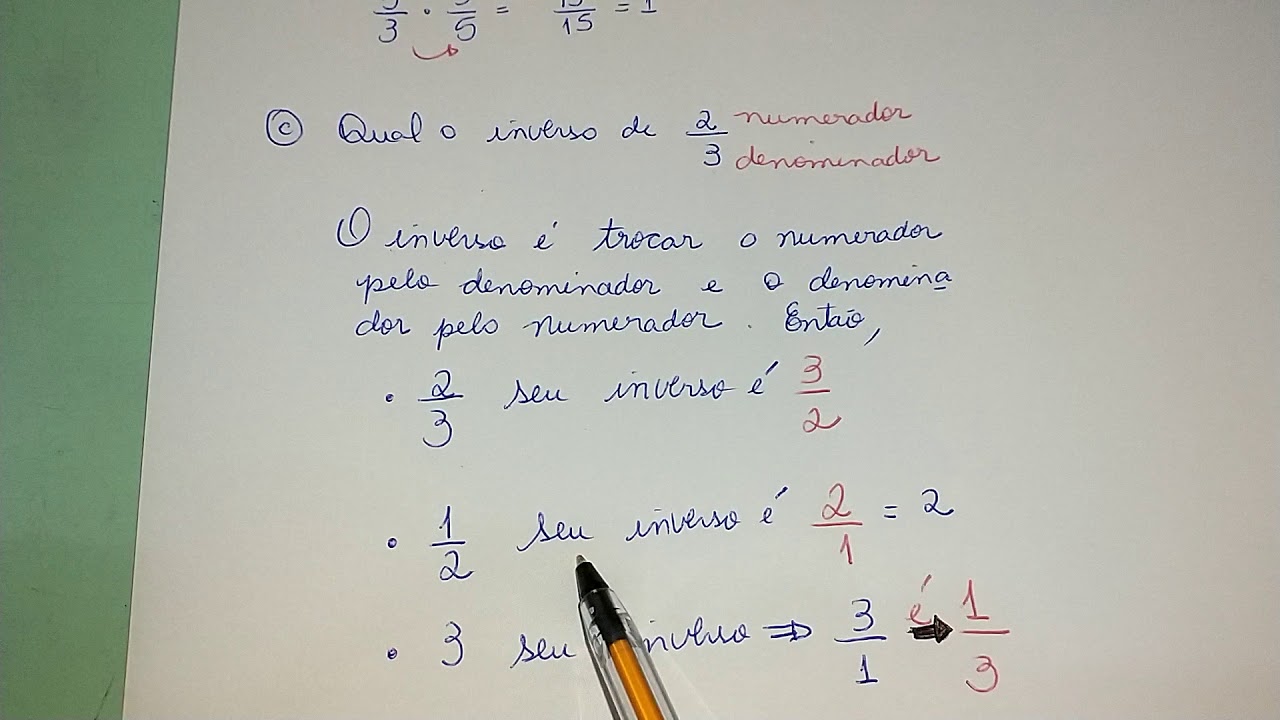 3 · 5 = 15/15 = 1
ⓒ Qual o inverso de 2/3 numerador denominador
O inverso é trocar o numerador
pelo denominador e o denomina
dor pelo numerador. Então,
• 2/3 seu inverso é 3/2
• 1/2 seu inverso é 2/1 = 2
• 3 seu inverso ⇒ 3/1 é ➡ 1/3